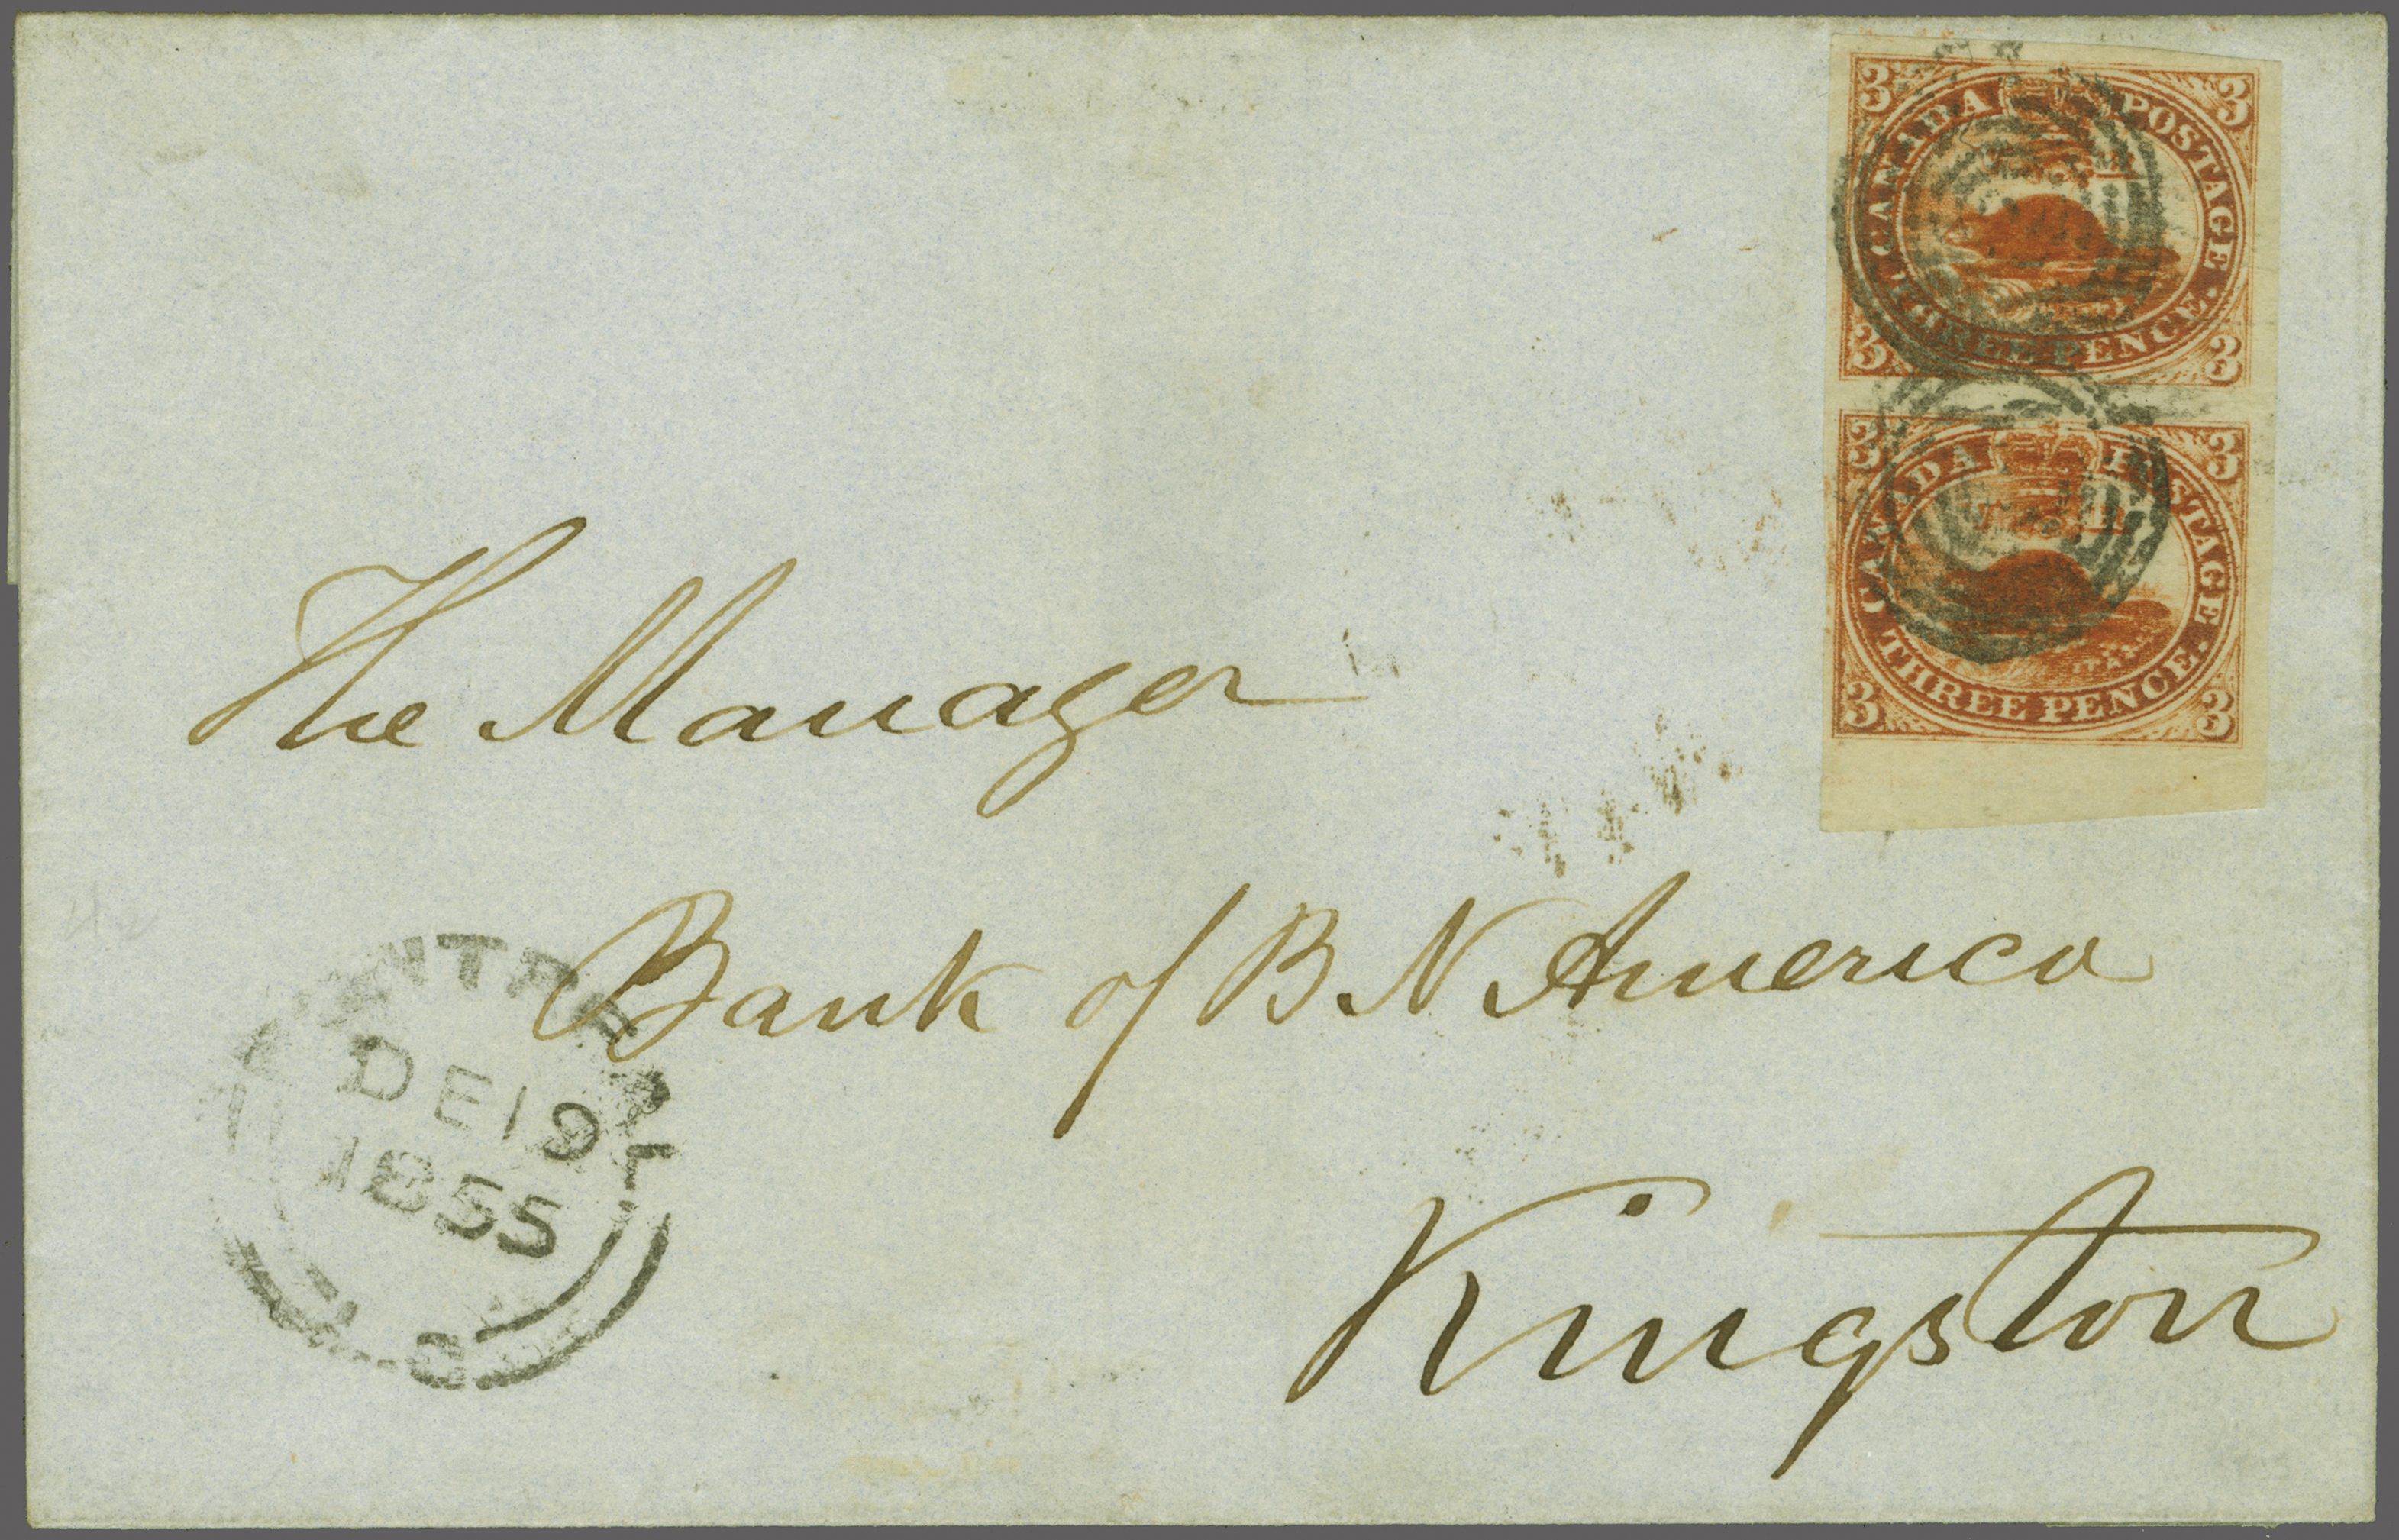 3 CANADA POSTAGE 3
3 THREE PENCE. 3
3 CANADA POSTAGE 3
3 THREE PENCE. 3
The Manager
Bank of B N America
Kingston
MONTREAL
DE 19
1855
L.C